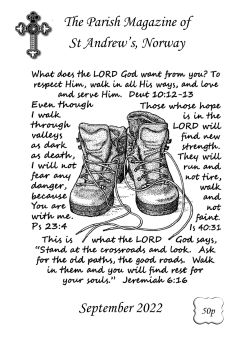 The Parish Magazine of
St Andrew's, Norway
What does the LORD God want from you? To
respect Him, walk in all His ways, and love
and serve Him.  Deut 10:12-13
Even though
I walk
through
valleys
as dark
as death,
I will not
fear any
danger,
because
You are
with me.
Ps 23:4
Those whose hope
is in the
LORD will
find new
strength.
They will
run and
not tire,
walk
and
not
faint.
Is 40:31
This is what the LORD God says,
"Stand at the crossroads and look.  Ask
for the old paths, the good roads.  Walk
in them and you will find rest for
your souls."  Jeremiah 6:16
September 2022
50p